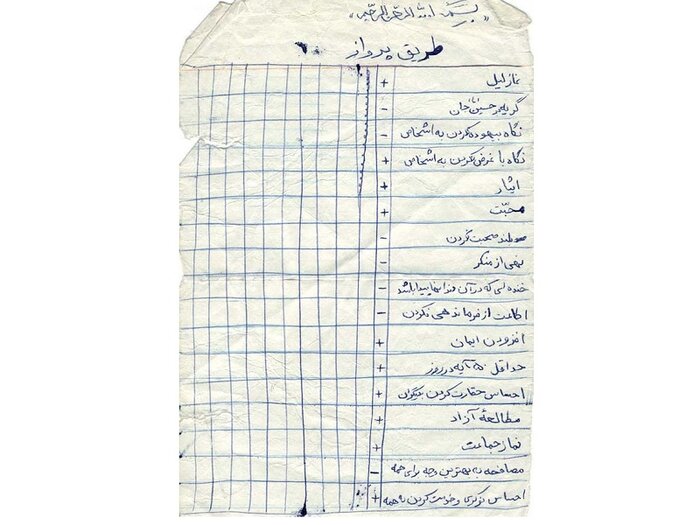 «بسم الله الرحمن الرحیم»
طریق پرواز
نماز لیل +
گریه بر حسین جان -
نگاه بیهوده کردن به اشخاص -
نگاه با غرض کردن به اشخاص +
ایثار +
محبّت +
بلند صحبت کردن -
نهی از منکر -
خنده ای که در آن دندانها پیدا باشد -
اطاعت از فرماندهی کردن -
افزودن ایمان +
حداقل ۵۰ آیه در روز +
احساس حقارت کردن +
مطالعهٔ آزاد +
نماز جماعت +
مصافحه به بهترین وجه برای همه -
احساس نوکری و خدمت کردن به همه +